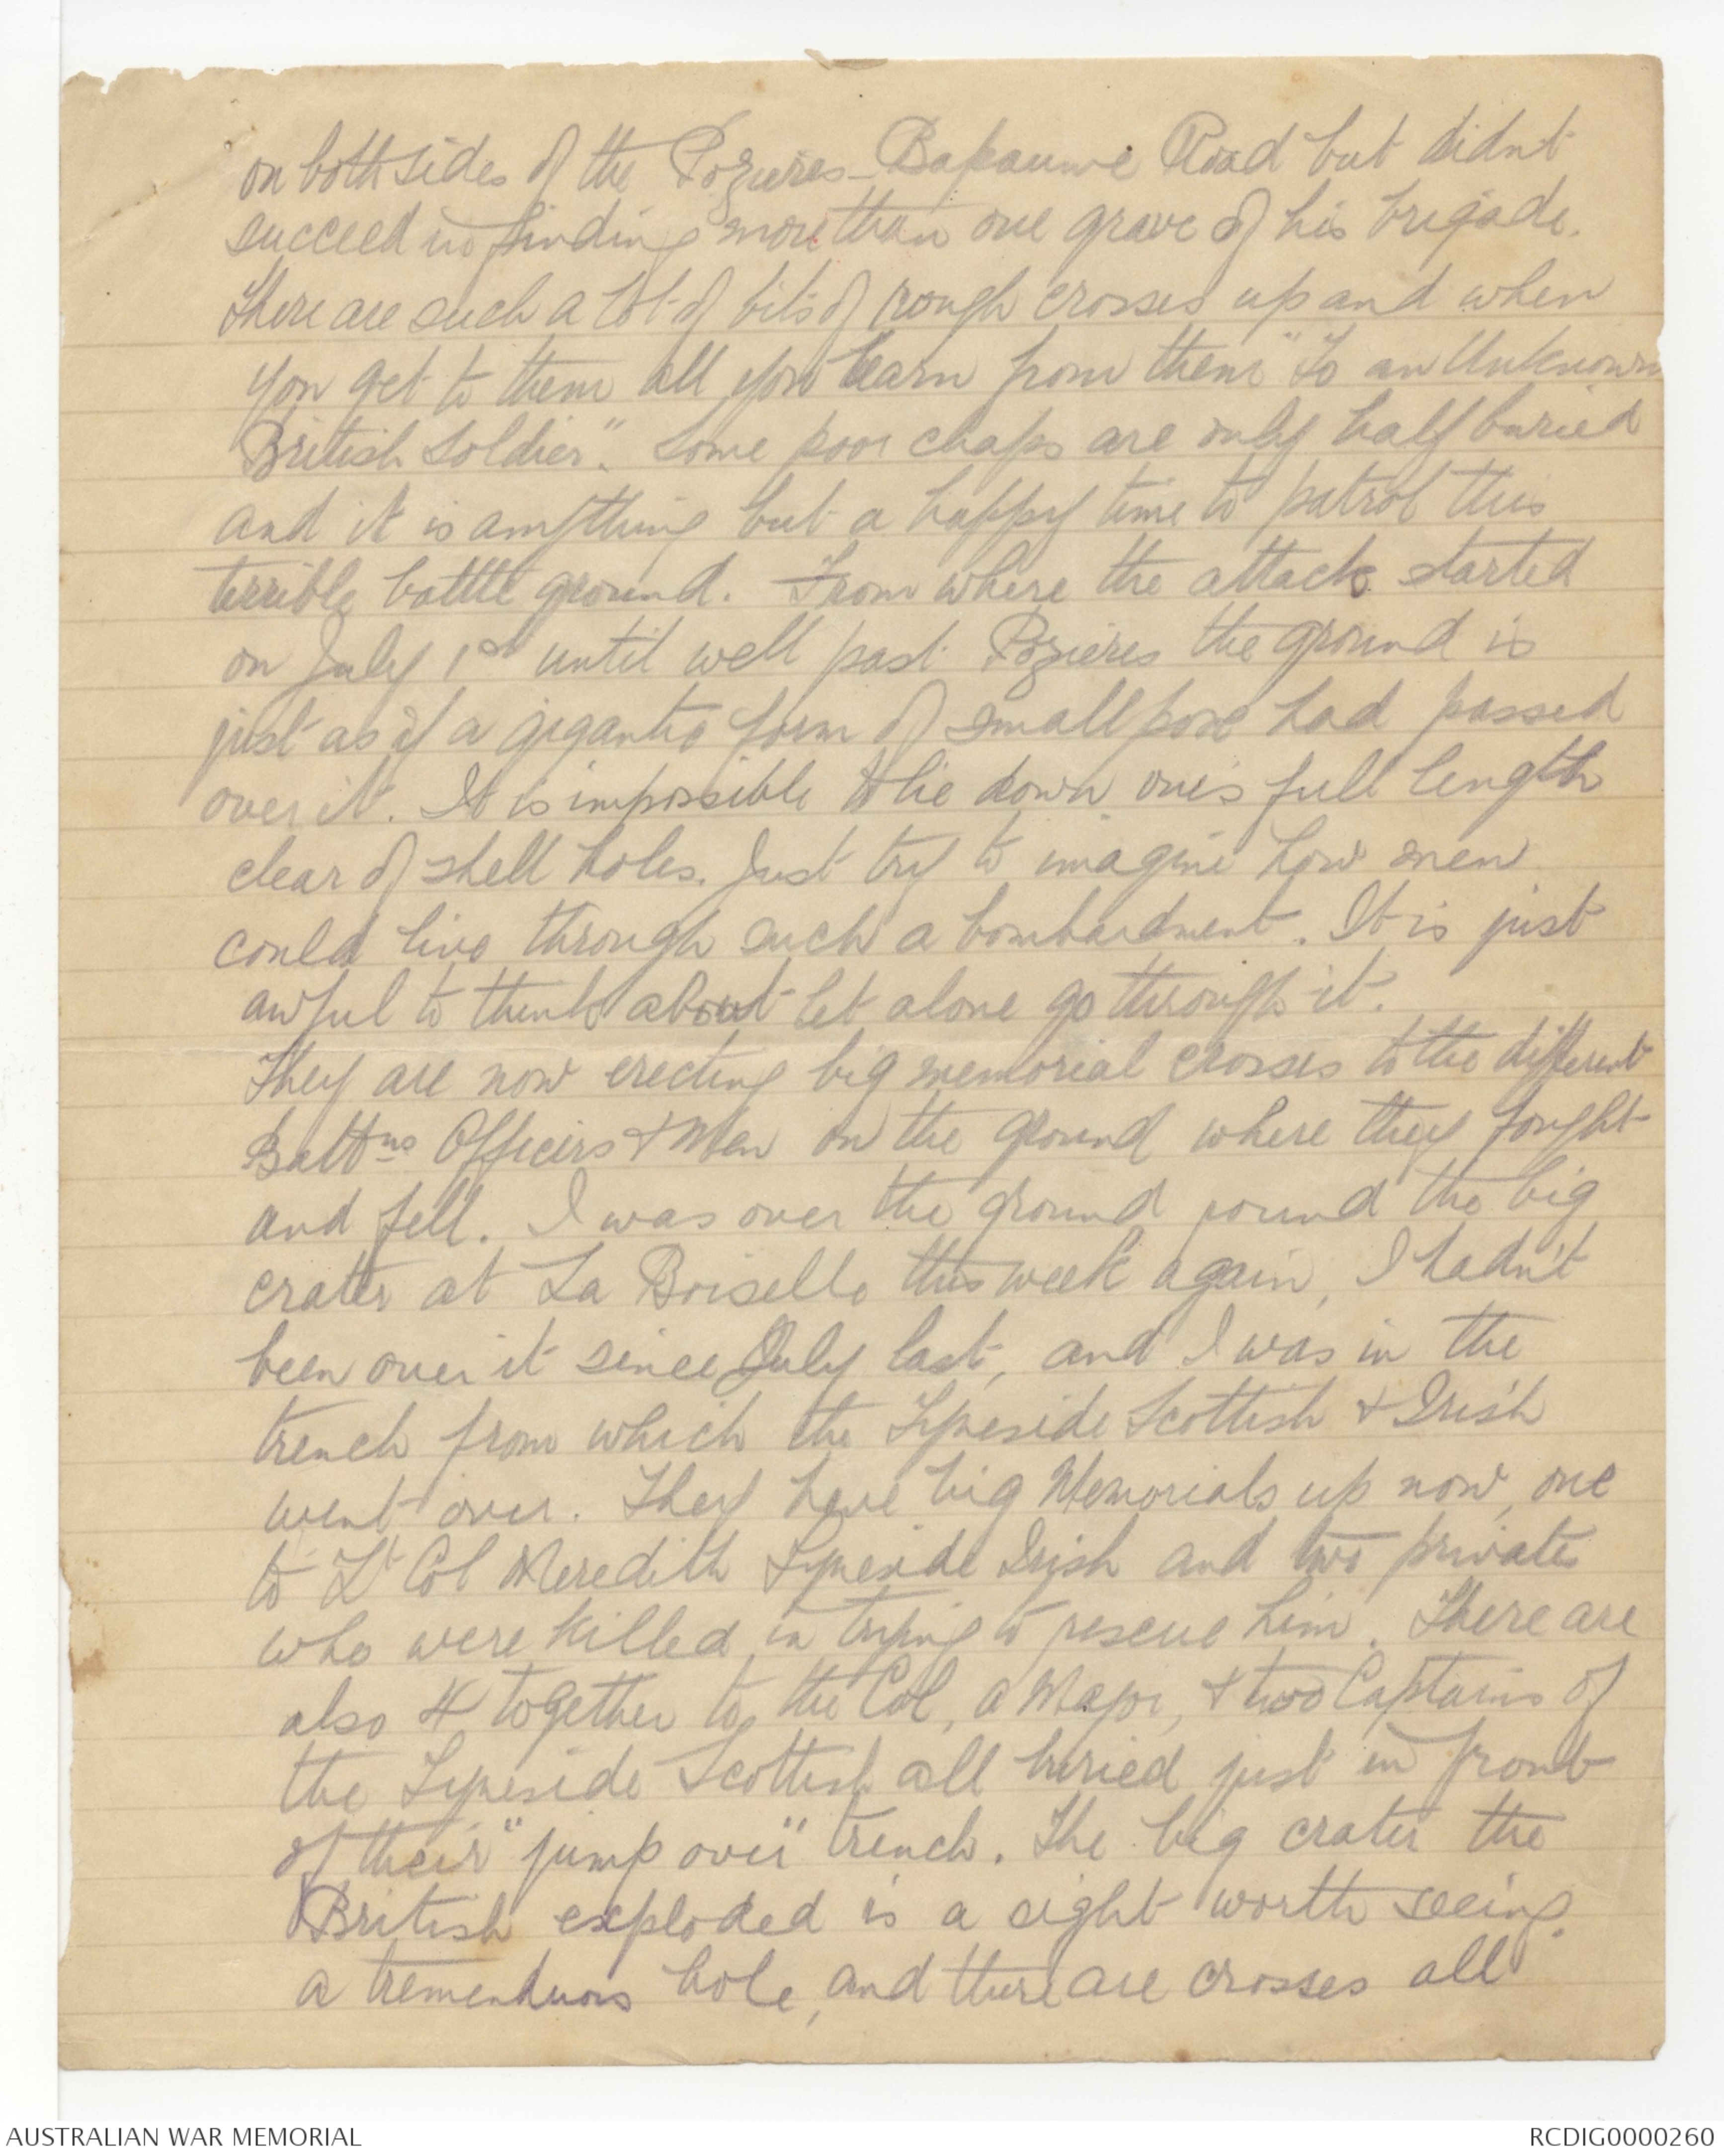 on both sides of the Pozieres-Bapaume Road but didnt
succeed in finding more than one grave of his brigade.
There are such a lot of bits of rough crosses up and when
you get to them all you learn from them "To an Unknown
British Soldier". Some poor chaps are only half buried
and it is anything but a happy time to patrol this
terrible battle ground. From where the attack started
on July 1st until well past Pozieres the ground is
just as if a gigantic form of smallpox had passed
over it. It is impossible to lie down one's full length
clear of shell holes. Just try to imagine how men
could live through such a bombardment. It is just
awful to think about let alone go through it.
They are now erecting big memorial crosses to the different
Battns Officers & Men on the ground where they fought
and fell. I was over the ground round the big
crater at La Boiselle this week again, I hadn't
been over it since July last, and I was in the
trench from which the Tyneside Scottish & Irish
went over. They have big Memorials up now, one
to Lt Col Meredith Tyneside Irish and two privates
who were killed in trying to rescue him. There are
also 4 together to the Col, a Major, & two Captains of
the Tyneside Scottish all buried just in front
of their "jump over" trench. The big crater the
British exploded is a sight worth seeing.
a tremenduous hole, and there are crosses all
AUSTRALIAN WAR MEMORIAL
RCDIG0000260